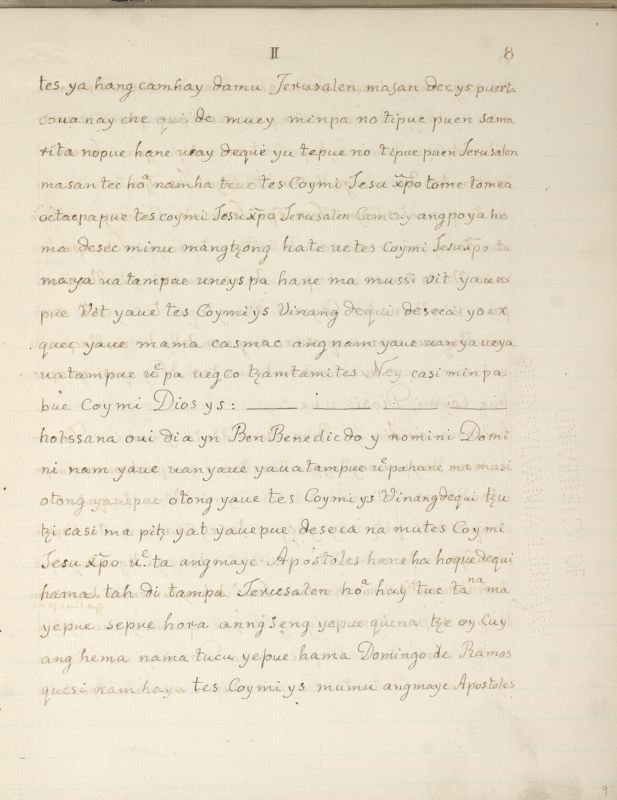 II 8
tes, ya hang camhay damu Jerusalen masan decys puerta
coua nay che qui de muey minpa no tipue puen sama
rita nopue hane ueay deque yu tepue no tipue puen Jerusalen
masan tec hoª namha teue tes Coymi Jesu xp̄o tome tomea
octacpapue tes coymi Jesu xp̄o Jerusalen Camcuy angpoya ho
ma desec minu mangtzong hate ue tes Coymi Jesu xp̄o tu
maya ua tampue uneys pa hane ma mussi vit yaue
pue Vit yaue tes Coymi ys Vinang dequi deseca yo ex
quec yaue mama casmac ang nam yaue uanyaueya
uatampue uᵉ pa uegco tzamtami tes Ney casi minpa
pue Coymi Dios ys:
hotssana oui dia yn Ben Benedicdo y nomini Domi
ni nam yaue uanyaue yauatampue uᵉ pahane ma musi
otong yauepue otong yaue tes Coymi ys Vinangdequi tzu
tzi casi ma pitz yat yauepue deseca na mutes Coymi
Jesu xp̄o uᵉ ta angmaye Apostoles hane ha hoque dequi
hama tah di tampa Jerusalen hoª hay tuc taⁿᵃ ma
yepue sepue hora anngseng yepue quena tze oy Cuy
ang hema nama tucu yepue hama Domingo de Ramos
quesi nam hayu tes Coymi ys mumu angmaye Apostoles
9